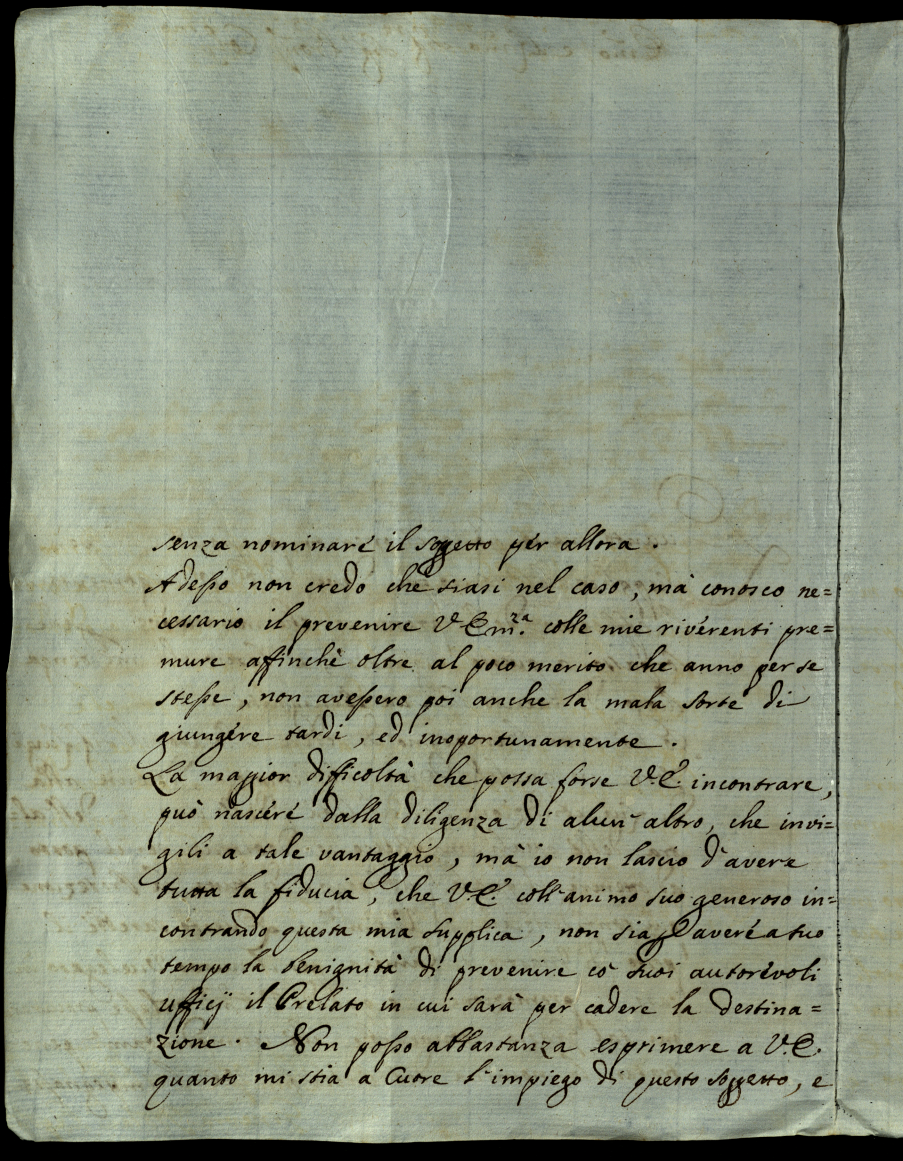 senza nominare il soggetto per allora.
Adesso non credo che siasi nel caso, mà conosco ne=
cessario il prevenire V. Em.za colle mie riverenti pre=
mure affinchè oltre al poco merito che anno per se
stesse, non avessero poi anche la mala sorte di
giungere tardi, ed inoportunamente.
La maggior difficoltà che possa forse V. E. incontrare,
può nascere dalla diligenza di alcun' altro, che invi=
gili a tale vantaggio, mà io non lascio d'avere
tutta la fiducia, che V. E. coll'animo suo generoso in=
contrando questa mia supplica, non sia p avere a suo
tempo la benignità di prevenire co' suoi autorevoli
ufficij il Prelato in cui sarà per cadere la destina=
zione. Non posso abbastanza esprimere a V. E.
quanto mi stia a Cuore l'impiego di questo soggetto, e